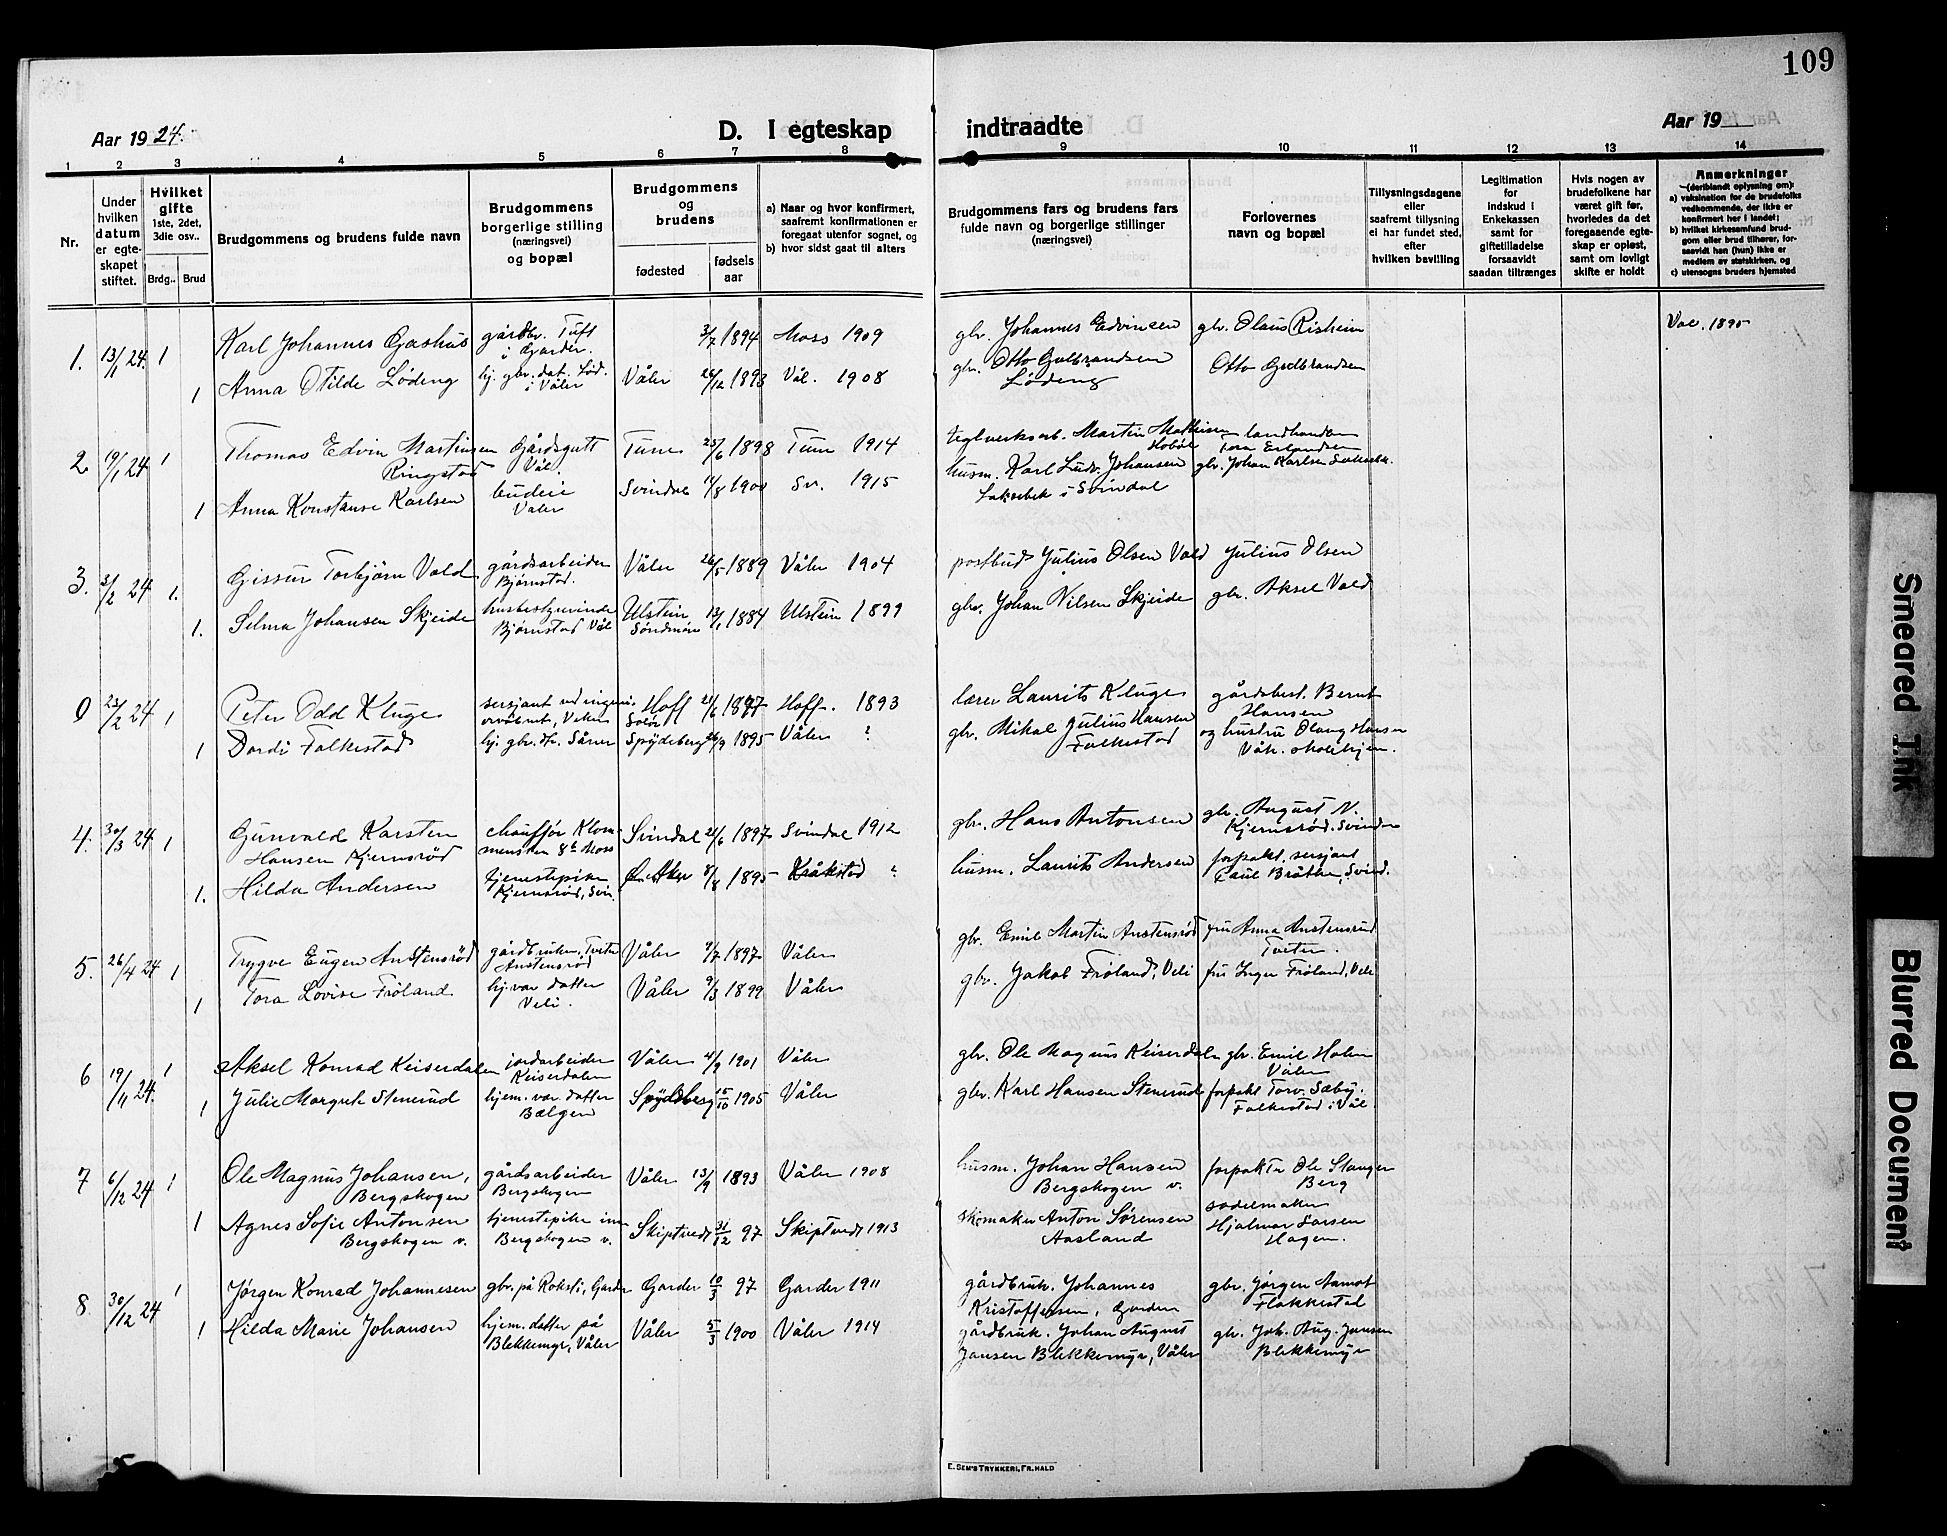 109
Aar 1924.
D. I egteskap indtraadte
Aar 19
1 2 3 4 5 6 7 8 9 10 11 12 13 14
Nr.
Under hvilken datum er egteskapet stiftet.
Hvilket gifte 1ste, 2det, 3die osv..
Brdg.. Brud
Brudgommens og brudens fulde navn
Brudgommens borgerlige stilling (næringsvei) og bopæl
Brudgommens og brudens
fødested
fødsels aar
a) Naar og hvor konfirmert, saafremt konfirmationen er foregaat utenfor sognet, og
b) hvor sidst gaat til alters
Brudgommens fars og brudens fars fulde navn og borgerlige stillinger (næringsvei)
Forlovernes navn og bopæl
Tillysningsdagene eller saafremt tillysning ei har fundet sted, efter hvilken bavilling
Legitimation for indskud i Enkekassen samt for giftetilladelse forsaavidt saadan tiltrænges
Hvis nogen av brudefolkene har været gift før, hvorledes da det foregaaende egteskap er opløst, samt om lovligt skifte er holdt
Anmerkninger
(deriblandt oplysning om):
a) vaksination for de brudefolks vedkommende, der ikke er konfirmert her i landet;
b) hvilket kirkesamfund brudgom eller brud tilhører, forsaavidt han (hun) ikke er medlem av statskirken, og
c) utensogns bruders hjemsted
1. 13/1 24. 1 Karl Johannes Gashus gårdbr. Tuft i Garder. 3/7 1894 Moss 1909 gbr. Johannes Edvinsen gbr. Olaus Risheim Vac. 1895
1 Anna Otilde Lødeng hj. gbr. dat. Lød. i Våler Våler 26/12 1893 Vål. 1908 gbr. Otto Gulbrandsen Lødeng Otto Gulbrandsen
2 19/1 24 1 Thomas Edvin Martinsen Ringstad Gårdsgutt Vål. Tune 25/6 1898 Tune 1914 teglverksarb. Martin Mathisen Hobøl landhandler Tora Erlandsen
1 Anna Konstanse Karlsen budeie Våler Svindal 11/8 1900 Sv. 1915 husm. Karl Ludv. Johansen Laksebek i Svindal gbr. Johan Karlsen
3. 3/2 24 1. Gissur Torbjørn Vold gårdsarbeider Bjørnstad. Våler 26/5 1889 Våler 1904 postbud Julius Olsen Vold Julius Olsen
1. Selma Johansen Skjeide husbestyrerinde Bjørnstad Vål Ulstein Søndmøre 13/1 1884 Ulstein 1899 gbr. Johan Nilsen Skjeide gbr. Aksel Vold
0 23/2 24 1 Peter Odd Kluge sersjant ved ingeniørvåbnet, Hoff Solør 21/6 1877 Hoff. 1893 lærer Laurits Kluge gårdsbest. Bernt Hansen
1 Dordi Folkestad hj. gbr. dtr. Såner Spydeberg 26/9 1895 Våler ? gbr. Mikal Julius Hansen Folkestad og hustru Olaug Hansen Vål.
4. 30/3 24 1 Gunvald Karsten Hansen Kjernsrød chauffør Klommensten 8b Moss Svindal 21/6 1897 Svindal 1912 gbr. Hans Antonsen gbr. August N. Kjernsrød. Svindal
1. Hilda Andersen tjenestepike Kjernsrød, Svin. Ø. Aker 8/8 1895 Kråkstad ? husm. Laurits Andersen forpakt. sersjant Paul Bråthe, Svind.
5. 26/4 24 1 Trygve Eugen Anstensrød gårdbruker, Tveter Anstensrød Våler 9/7 1897 Våler gbr. Emil Martin Anstensrød fru Anna Anstensrud Tveter.
1 Tora Lovise Frøland hj. vær. datter Veli. Våler 9/3 1899 Våler gbr. Jakob Frøland, Veli fru Inger Frøland, Veli
6 19/11 24. 1 Aksel Konrad Keiserdalen jordarbeider Keiserdalen Våler 4/9 1901 Våler gbr. Ole Magnus Keiserdalen gbr. Emil Holen Våler
1 Julie Margrete Stenerud hjem. vær. datter Bælgen Spydeberg 15/10 1905 Våler gbr. Karl Hansen Stenerud forpakt. Torv. Sæby. Folkestad i Vål.
7 6/12 24 1 Ole Magnus Johansen, Bergskogen gårdsarbeider Bergskogen Våler 13/9 1893 Våler 1908 husm. Johan Hansen Bergskogen v. forpakter Ole Stanger Berg
1 Agnes Sofie Antonsen Bergskogen v. tjenestepike inn Bergskogen v. Skiptvedt 31/12 97 Skiptvedt 1913 skomaker Anton Sørensen Aasland sadelmaker Hjalmar Larsen Hagen.
8. 30/12 24 1 Jørgen Konrad Johannesen gbr. på Roksti, Garder Garder 10/3 97 Garder 1911 gårdbruk. Johannes Kristoffersen, Garder gbr. Jørgen Aamot Flakkestad
1 Hilda Marie Johansen hjem. datter på Blekkemyr, Våler Våler 5/3 1900 Våler 1914 gårdbruk. Johan August Jansen Blekkemyr, Våler gbr. Joh. Aug. Jansen Blekkemyr
E. SEM'S TRYKKERI, FR.HALD
Smeared Ink
Blurred Document